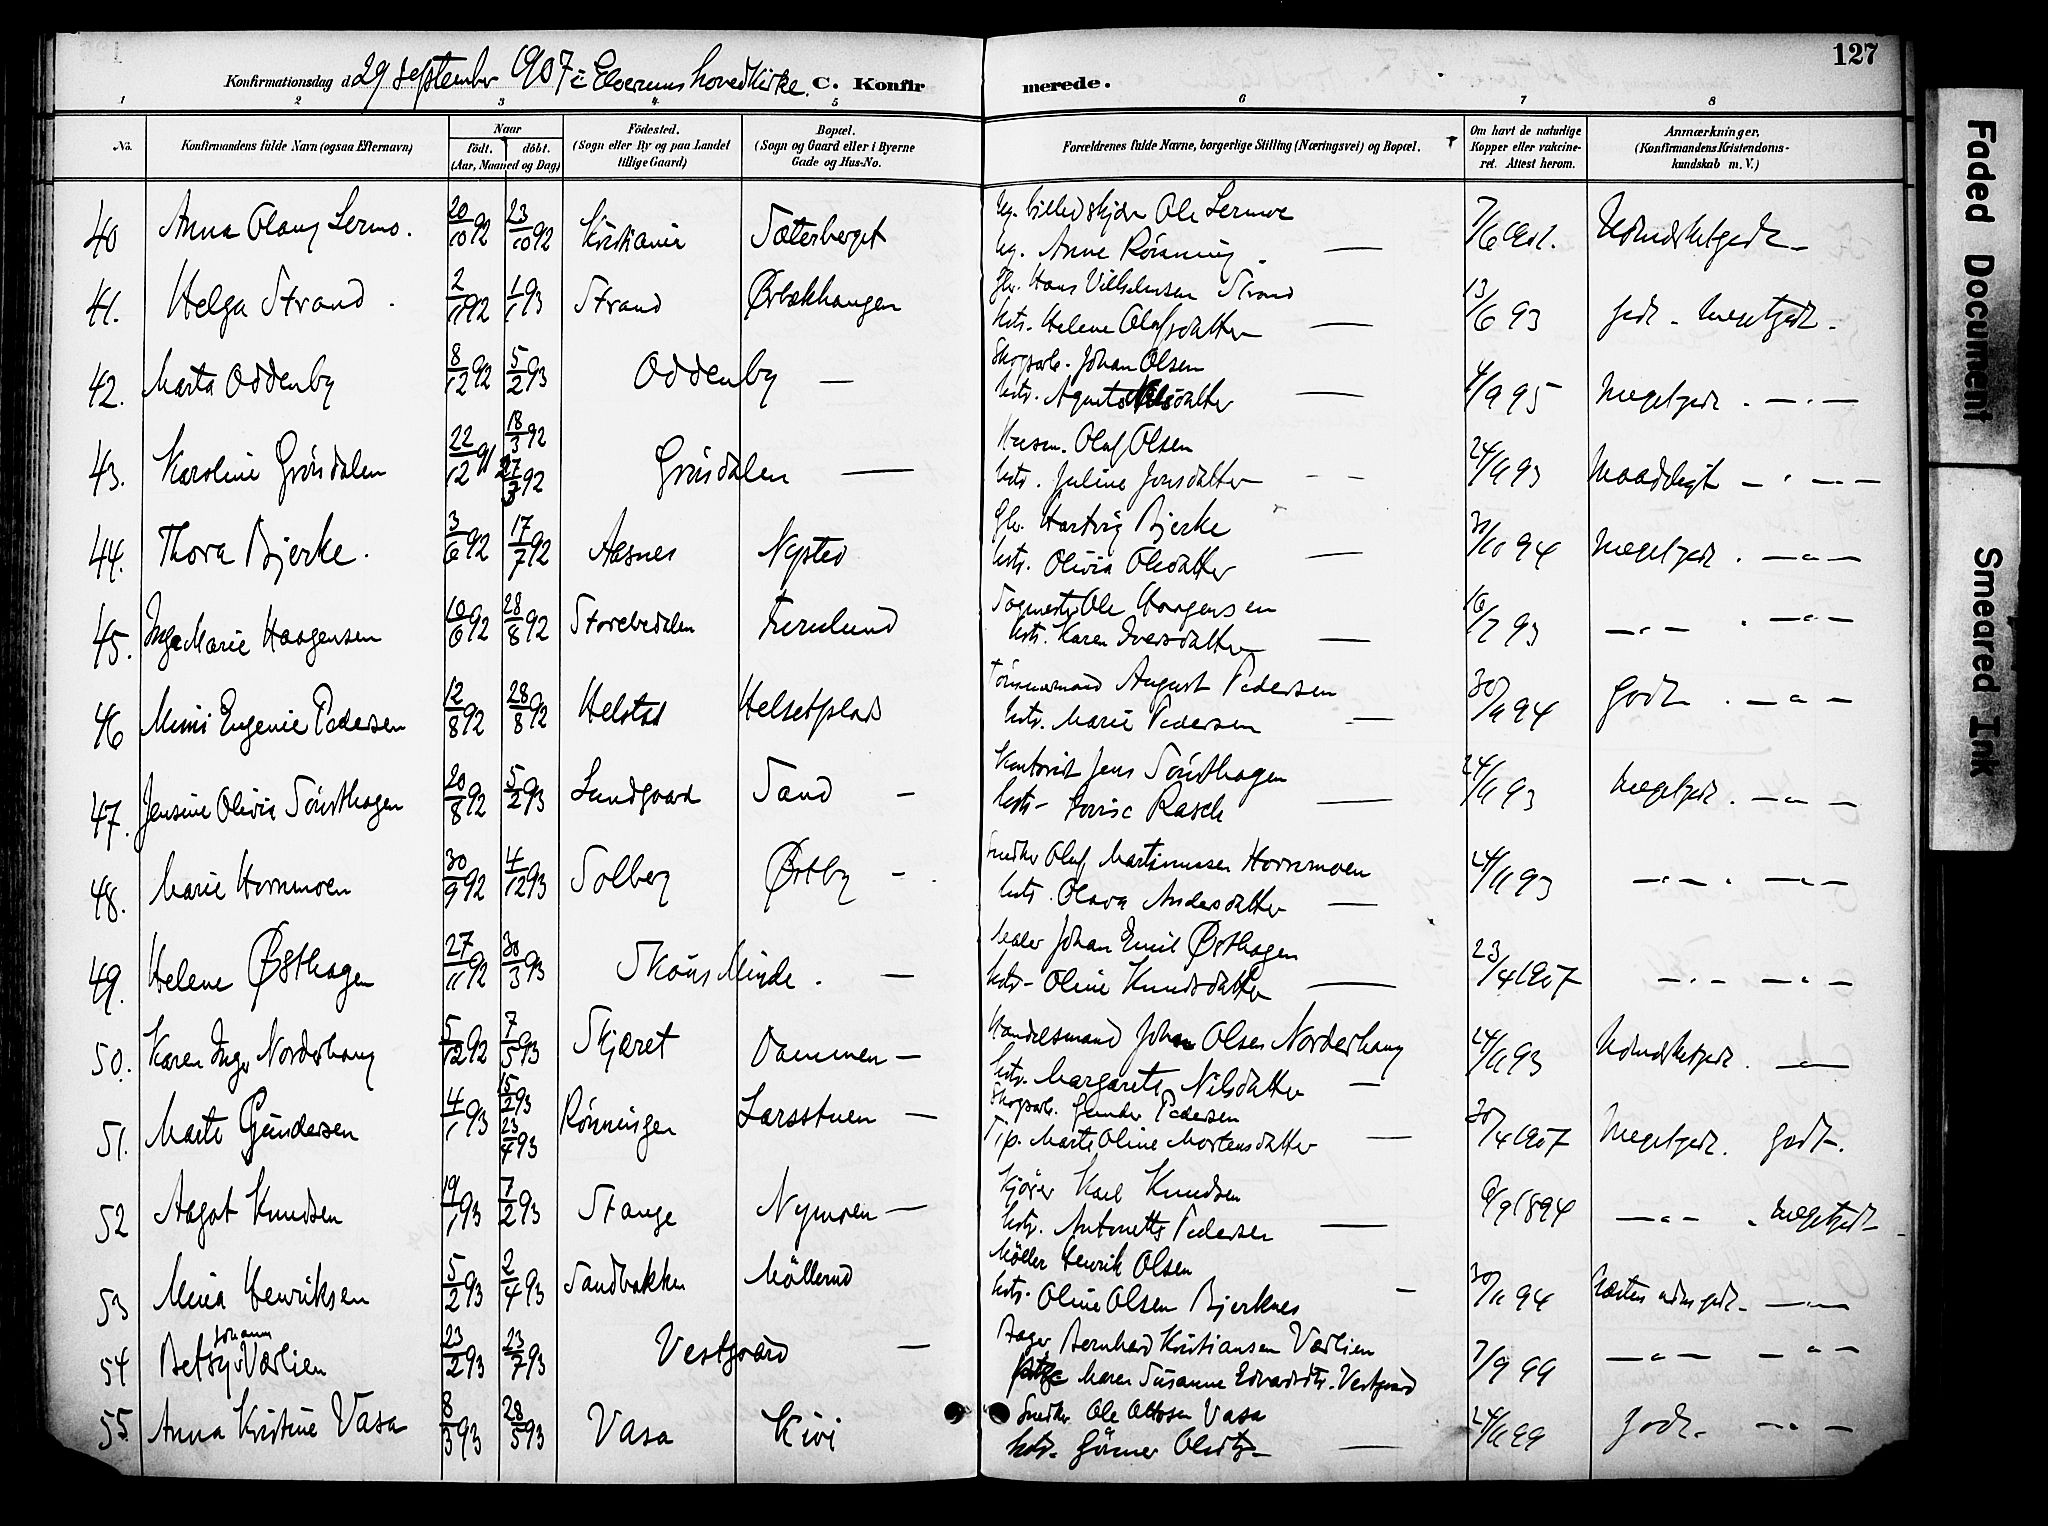 127
Konfirmationsdag d. 29 september 1907 i Elverums hovedkirke. C. Konfirmerede.
1 2 3 4 5 6 7 8
No. Konfirmandens fulde Navn (ogsaa Efternavn) Naar født. døbt. (Aar, Maaned og Dag) Fødested. (Sogn eller By og paa Landet tillige Gaard) Bopæl. (Sogn og Gaard eller i Byerne Gade og Hus-No. Forældrenes fulde Navne, borgerlige Stilling (Næringsvei) og Bopæl. Om havt de naturlige Kopper eller vakcineret. Attest herom. Anmærkninger. (Konfirmandens Kristendomskundskab m. V.)
40 Anna Olaug Lermo. 20/10 92 23/10 92 Kristiania Sæterberget Ug. billedskjær Ole Lermoe
Ug. Anne Rønning — 7/6 1901. Udmerketgodt —
41. Helga Strand. 2/11 92 1/1 93 Strand Ørbækhaugen Gbr. Hans Vilhelmsen Strand
hstr. Helene Olafsdatter — 13/6 93 godt - megetgodt.
42. Marta Oddenby 8/12 92 5/2 93 Oddenby — Skogsarb. Johan Olsen
hstr. Agnete Nilsdatter — 4/9 95 Megetgodt. — " —
43. Karoline Grønsdalen 22/12 91 18/3 92 27/3 92 Grønsdalen — Husm. Olaf Olsen
hstr. Juline Jonsdatter - - 24/11 93 Maadeligt — " —
44. Thora Bjerke. 3/6 92 17/7 92 Aasnes Nysted Gbr. Hartvig Bjerke
hstr. Olivia Olsdatter — 30/10 94 Megetgodt. — " —
45. Inga Marie Haagensen 10/6 92 28/8 92 Storebedalen Furulund Sagmester Ole Haagensen
hstr. Karen Iversdatter — 16/7 93 — " — . — " —
46 Mimi Eugenie Pedersen 12/8 92 28/8 92 Helstad Helsetplads Tømmermand August Pedersen
hstr. Marie Pedersen — 30/11 94 Godt. — " —
47. Jensine Olivia Sørsthagen 20/8 92 5/2 93 Lundgaard Sand — Kontorist Jens Sørsthagen
hstr. Lovise Rasch — 24/11 93 Megetgodt. — " —
48. Marie Hornmoen 30/9 92 4/12 93 Solberg Østby — Snedker Olaf Martinussen Hornmoen
hstr. Olava Andersdatter — 24/11 93 — " — . — " —
49. Helene Østhagen 27/11 92 30/3 93 Skøns Minde. — Maler Johan Emil Østhagen
hstr. Oline Knudsdatter — 23/4 1907 — " — — " —
50. Karen Inga Norderhaug 5/12 92 7/5 93 Skjæret Dammen — Handelsmand Johan Olsen Norderhaug
hstr. Margarete Nilsdatter — 24/11 93 Udmerketgodt. — " —
51. Marte Gundersen 4/1 93 15/2 93 23/4 93 Rønningen Larsstuen — Skogsarb. Gunder Pedersen
Tip. Marte Oline Mortensdatter — 30/4 1907 Megetgodt. godt.
52 Aagot Knudsen 19/1 93 7/2 93 Stange Nymoen — Kjører Karl Knudsen
hstr. Antonette Pedersen — 9/9 1894 — " — . megetgodt
53 Mina Henriksen 5/2 93 2/4 93 Sandbakken Møllerud Møller Henrik Olsen
hstr. Oline Olsen Bjerknes — 30/11 94 Næsten udm. godt. — " —
54 Betsy Johanne Værlien 23/2 93 23/7 93 Vestgaard — Bager Bernhard Kristiansen Værlien
Maren Susanne Edvardsdtr. Vestgaard 7/9 99 — " — — " —
55 Anna Kristine Vasa 8/3 93 28/5 93 Vasa Kivi Snedker Ole Ottosen Vasa
hstr. Gørner Olsdtr. — 24/11 99 Godt. — " —
Faded Document
Smeared Ink